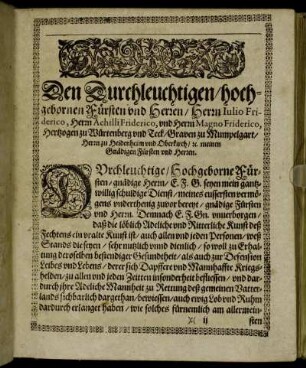 Den Durchleuchtigen/ hoch-
gebornen Fürsten vnd Herren/ Herrn Iulio Fri-
derico, Herrn Achilli Friderico, vnd Herrn Magno Friderico,
Hertzogen zu Würtenberg vnd Teck/ Graven zu Mümpelgart/
Herrn zu Heidenheim vnd Oberkirch/ ꝛc. meinen
Gnädigen Fürsten vnd Herrn.
DVrchleuchtige/ Hochgeborne Für-
sten/ gnädige Herrn/ E. F. G. seyen mein gantz-
willig schuldige Dienst/ meines eussersten vermö-
gens vnderthenig zuvor bereyt/ gnädige Fürsten
vnd Herrn. Demnach E. F. Gn. vnverborgen/
daß die löblich Adeliche vnd Ritterliche Kunst deß
Fechtens ein uralte Kunst ist/ auch allen vnd jeden Personen/ weß
Stands die seyen/ sehr nutzlich vnnd dienlich/ so woll zu Erhal-
tung derselben bestendiger Gesundtheit/ als auch zur Defension
Leibes vnd Lebens/ derer sich Dapffere vnd Mannhaffte Kriegs-
helden/ zu allen vnd jeden Zeiten insonderheit beflissen/ vnd dar-
durch ihre Adeliche Mannheit zu Rettung deß gemeinen Vatter-
lands sichbarlich dargethan/ bewiesen/ auch ewig Lob vnd Ruhm
dardurch erlanget haben/ wie solches fürnemlich am allermein-
ij
sten